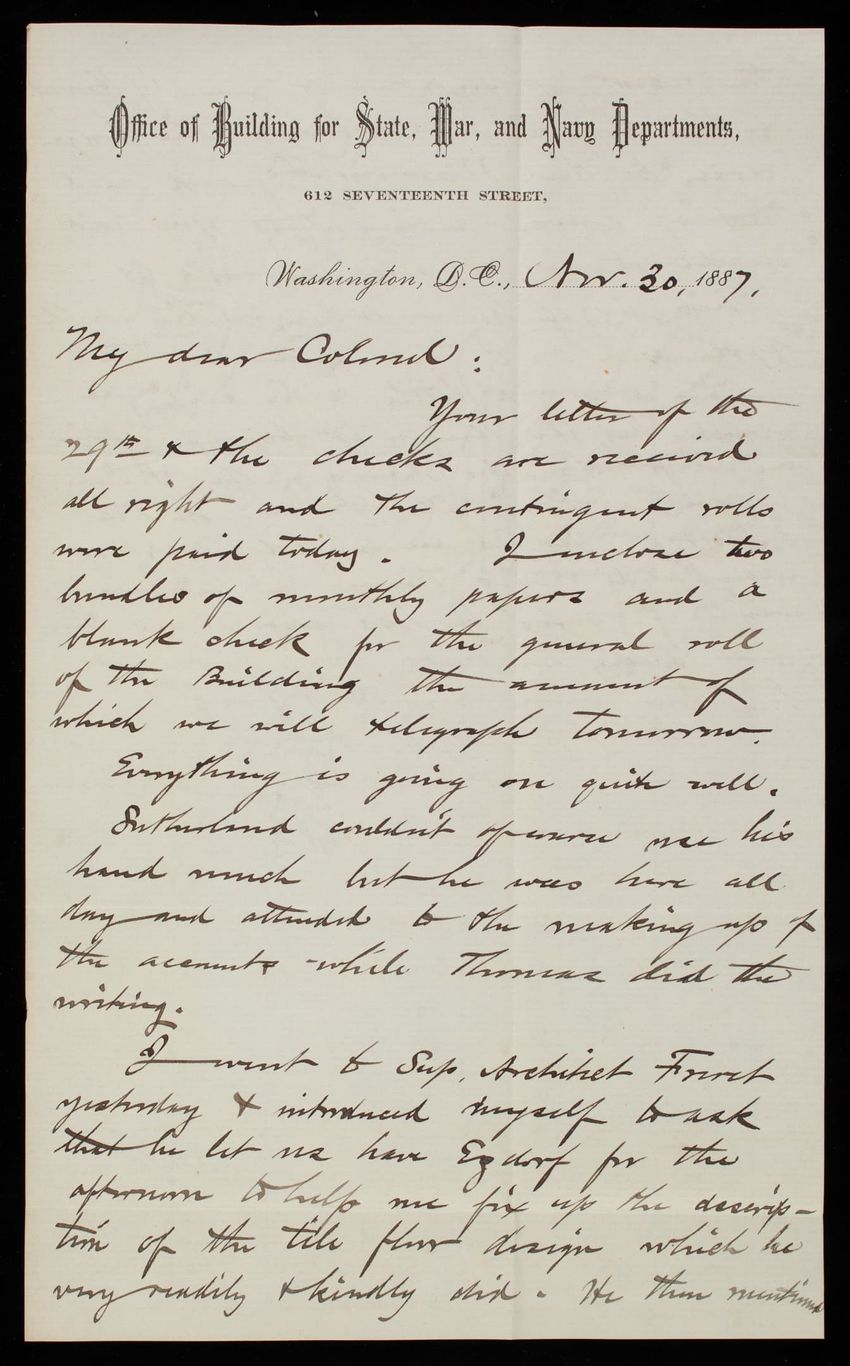 Office of Building for State, War, and Navy Departments,
612 SEVENTEENTH STREET,
Washington, D.C., Nov. 30, 1887.
My dear Colonel:
Your letter of the
29th & the checks are received
all right and the contingent rolls
were paid today. I inclose two
bundles of monthly papers and a
blank check for the general roll
of the Building the amount of
which we will telegraph tomorrow.
Everything is going on quite well.
Sutherland couldn't of course use his
hand much but he was here all
day and attended to the making up of
the accounts while Thomas did the
writing.
I went to Sup. Architect Freret
yesterday & introduced myself to ask
that he let us have Ezdorf for the
afternoon to help me fix up the descrip-
tion of the tile floor design which he
very readily & kindly did. He then mentioned